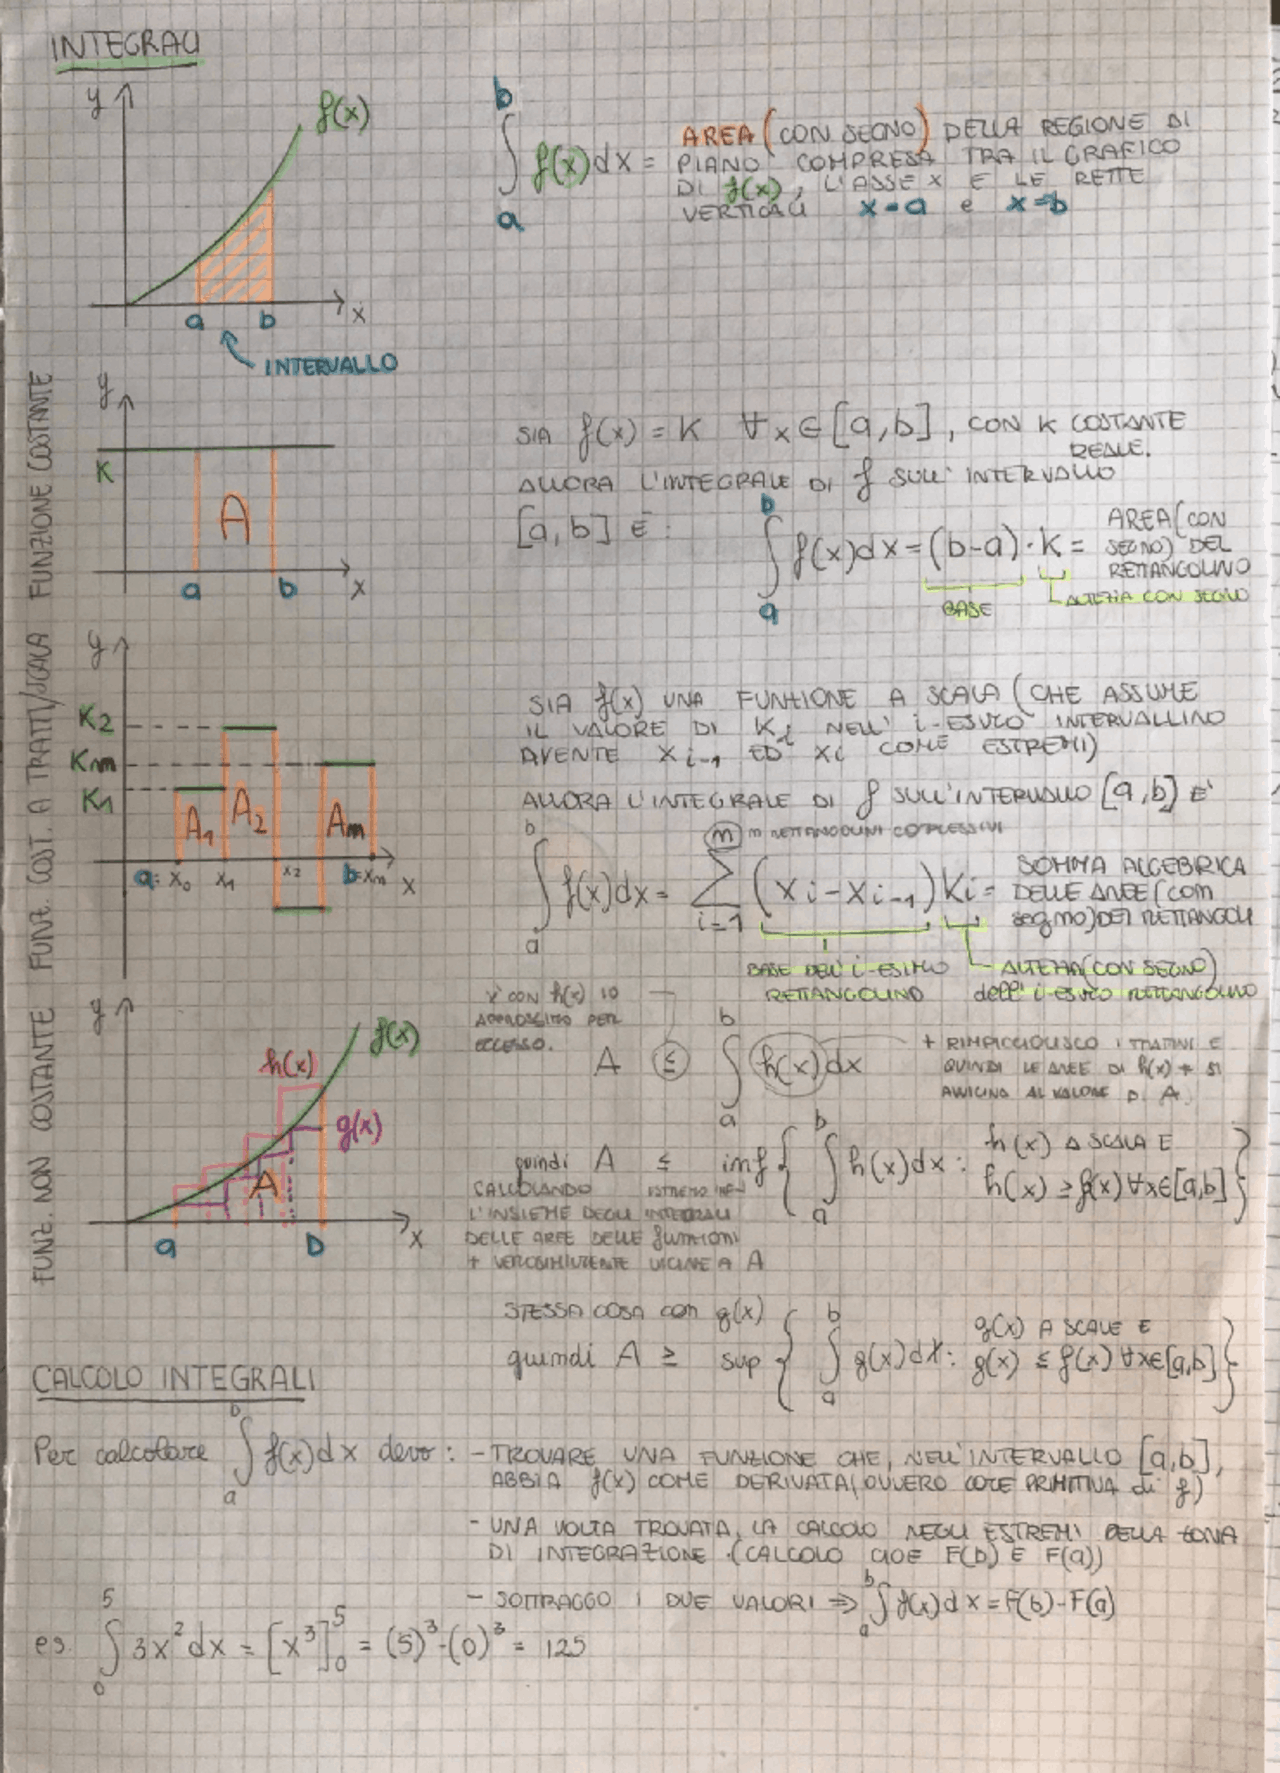 INTEGRALI
y
f(x)
a
b
x
INTERVALLO
b
∫ f(x)dx =
a
AREA (CON SEGNO) DELLA REGIONE DI
PIANO COMPRESA TRA IL GRAFICO
DI f(x), L'ASSE X E LE RETTE
VERTICALI x=a e x=b
FUNZIONE COSTANTE
y
K
A
a
b
x
SIA f(x) = K ∀x∈[a,b], CON K COSTANTE
REALE.
ALLORA L'INTEGRALE DI f SULL'INTERVALLO
[a,b] È:
b
∫ f(x)dx = (b-a)·K =
a
AREA (CON
SEGNO) DEL
RETTANGOLINO
BASE
ALTEZZA CON SEGNO
FUNZ. COST. A TRATTI/SCALA
y
K2
Km
K1
A1
A2
Am
a=x0
x1
x2
b=xm
x
SIA f(x) UNA FUNZIONE A SCALA (CHE ASSUME
IL VALORE DI Ki NELL'i-ESIMO INTERVALLINO
AVENTE xi-1 ED xi COME ESTREMI)
ALLORA L'INTEGRALE DI f SULL'INTERVALLO [a,b] E'
m RETTANGOLINI COMPLESSIVI
b
m
∫ f(x)dx = ∑ (xi-xi-1)Ki =
a
i=1
SOMMA ALGEBRICA
DELLE AREE (con
segno) DEI RETTANGOLI
BASE DELL'i-ESIMO
RETTANGOLINO
ALTEZZA (CON SEGNO)
dell'i-ESIMO RETTANGOLINO
FUNZ. NON COSTANTE
y
f(x)
h(x)
g(x)
A
a
b
x
CON h(x) IO
APPROSSIMO PER
ECCESSO.
b
A ≤ ∫ h(x)dx
a
+ RIMPICCIOLISCO I TRATTINI E
QUINDI LE AREE DI h(x) + SI
AVVICINA AL VALORE DI A.
b
quindi A ≤ inf { ∫ h(x)dx :
a
h(x) A SCALA E
h(x) ≥ f(x) ∀x∈[a,b] }
CALCOLANDO
ESTREMO INF.
L'INSIEME DEGLI INTEGRALI
DELLE AREE DELLE funzioni
+ VEROSIMILMENTE VICINE A A
STESSA COSA con g(x)
b
quindi A ≥ sup { ∫ g(x)dx :
a
g(x) A SCALE E
g(x) ≤ f(x) ∀x∈[a,b] }
CALCOLO INTEGRALI
b
Per calcolare ∫ f(x)dx devo:
a
- TROVARE UNA FUNZIONE CHE, NELL'INTERVALLO [a,b],
ABBIA f(x) COME DERIVATA (OVVERO COME PRIMITIVA di f)
- UNA VOLTA TROVATA, LA CALCOLO NEGLI ESTREMI DELLA ZONA
DI INTEGRAZIONE (CALCOLO CIOE F(b) E F(a))
b
- SOTTRAGGO I DUE VALORI ⇒ ∫ f(x)dx = F(b)-F(a)
a
5
es. ∫ 3x² dx = [x³]⁵₀ = (5)³-(0)³ = 125
0